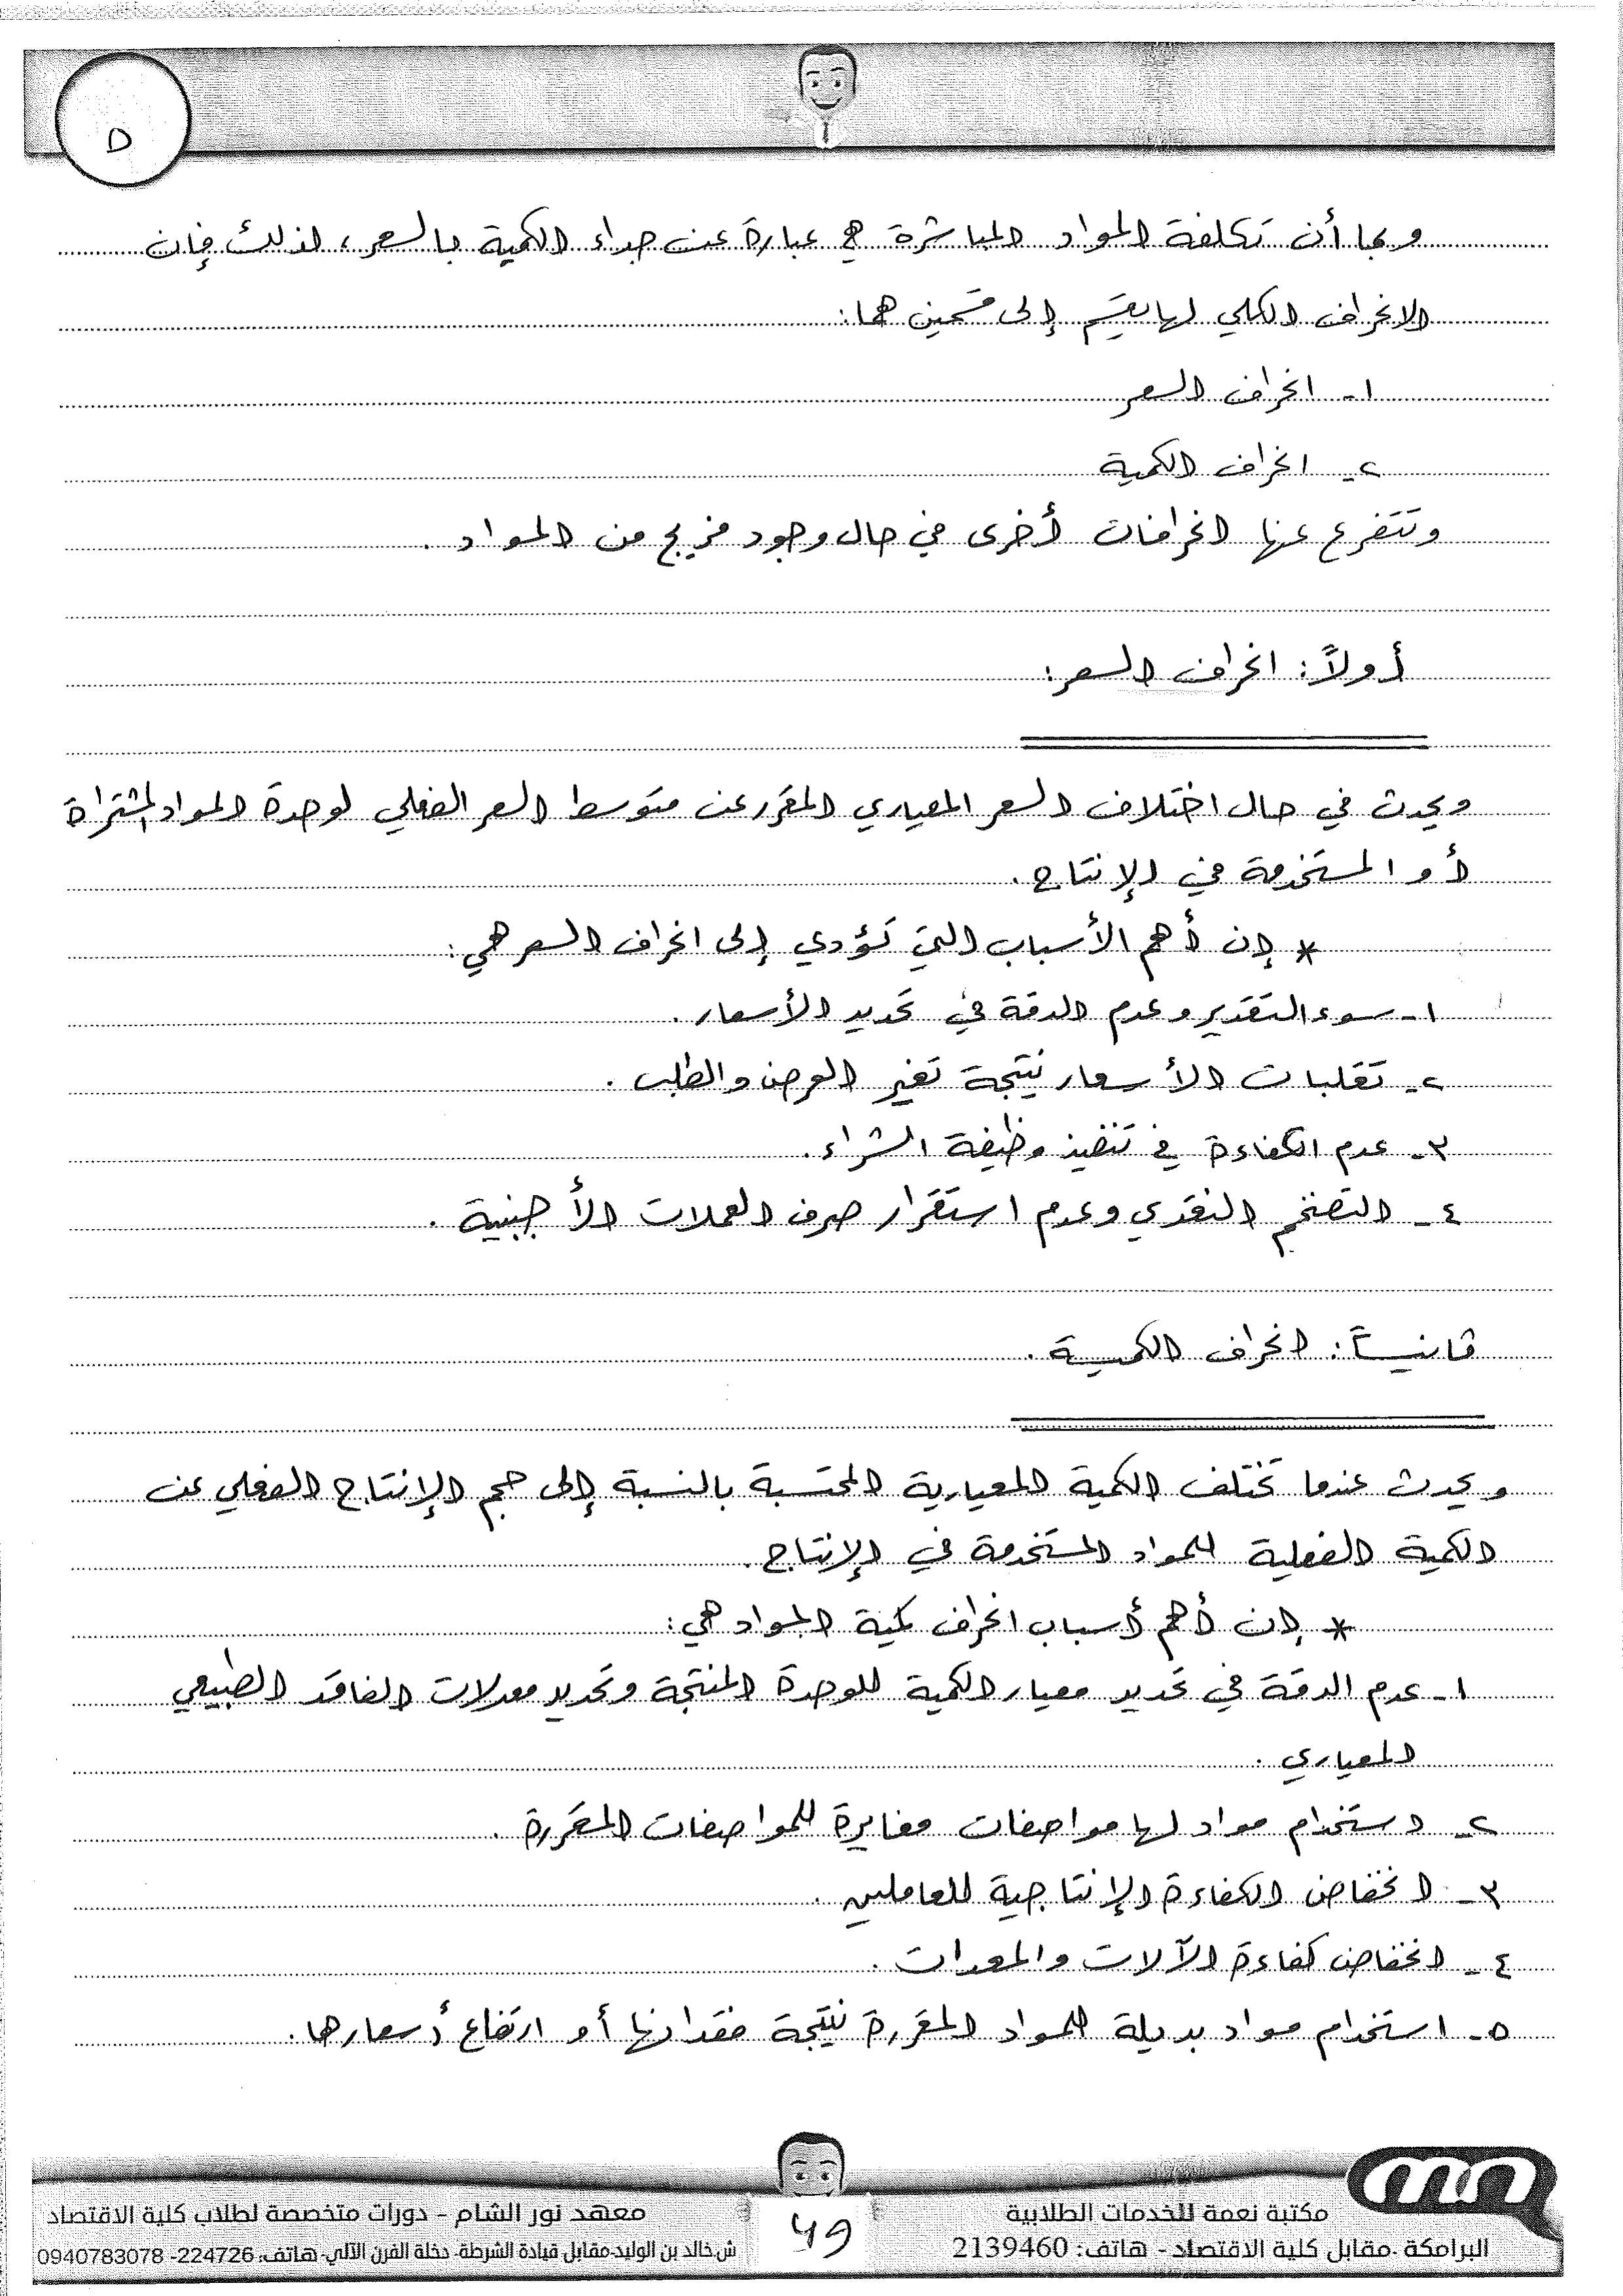 ٥
وبما أن تكلفة المواد المباشرة هي عبارة عن جداء الكمية بالسعر، لذلك فإن
الانحراف الكلي لها يقسم إلى قسمين هما:
١- انحراف السعر
٢- انحراف الكمية
وتتفرع عنها انحرافات أخرى في حال وجود مزيج من المواد.
أولاً: انحراف السعر:
ويحدث في حال اختلاف السعر المعياري المقرر عن متوسط السعر الفعلي لوحدة المواد المشتراة
أو المستخدمة في الإنتاج.
* إن أهم الأسباب التي تؤدي إلى انحراف السعر هي:
١- سوء التقدير وعدم الدقة في تحديد الأسعار.
٢- تقلبات الأسعار نتيجة تغير العرض والطلب.
٣- عدم الكفاءة في تنفيذ وظيفة الشراء.
٤- التضخم النقدي وعدم استقرار صرف العملات الأجنبية.
ثانياً: انحراف الكمية.
ويحدث عندما تختلف الكمية المعيارية المحتسبة بالنسبة إلى حجم الإنتاج الفعلي عن
الكمية الفعلية للمواد المستخدمة في الإنتاج.
* إن أهم أسباب انحراف كمية المواد هي:
١- عدم الدقة في تحديد معيار الكمية للوحدة المنتجة وتحديد معدلات الفاقد الطبيعي
المعياري.
٢- استخدام مواد لها مواصفات مغايرة للمواصفات المقررة.
٣- انخفاض الكفاءة الإنتاجية للعاملين.
٤- انخفاض كفاءة الآلات والمعدات.
٥- استخدام مواد بديلة للمواد المقررة نتيجة فقدانها أو ارتفاع أسعارها.
مكتبة نعمة للخدمات الطلابية
البرامكة -مقابل كلية الاقتصاد - هاتف: 2139460
49
معهد نور الشام - دورات متخصصة لطلاب كلية الاقتصاد
ش.خالد بن الوليد-مقابل قيادة الشرطة- دخلة الفرن الآلي- هاتف: 224726- 0940783078